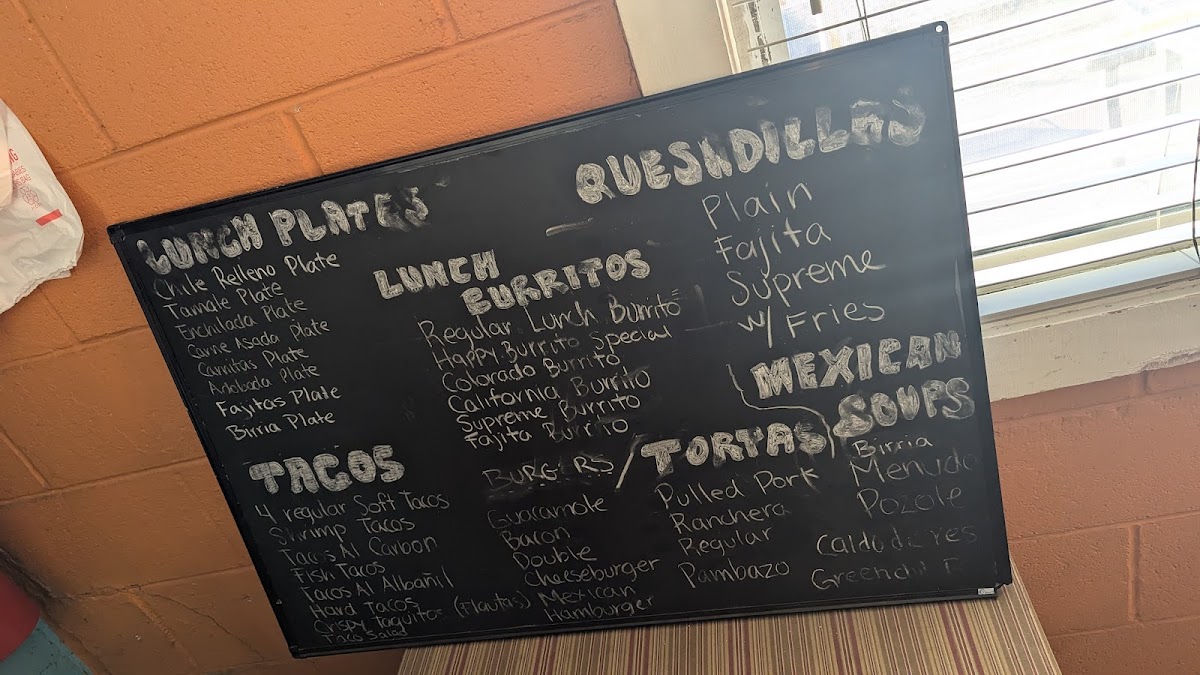 LUNCH PLATES
Chile Relleno Plate
Tamale Plate
Enchilada Plate
Carne Asada Plate
Carnitas Plate
Adobada Plate
Fajitas Plate
Birria Plate
TACOS
4 regular Soft Tacos
Shrimp Tacos
Tacos Al Carbon
Fish Tacos
Tacos Al Albañil
Hard Tacos
Crispy Taquitos (Flautas)
Taco Salad
LUNCH
BURRITOS
Regular Lunch Burrito
Happy Burrito Special
Colorado Burrito
California Burrito
Supreme Burrito
Fajita Burrito
BURGERS /
Guacamole
Bacon
Double
Cheeseburger
Mexican
Hamburger
TORTAS
Pulled Pork
Ranchera
Regular
Pambazo
QUESADILLAS
Plain
Fajita
Supreme
w/ Fries
MEXICAN
SOUPS
Birria
Menudo
Pozole
Caldo de res